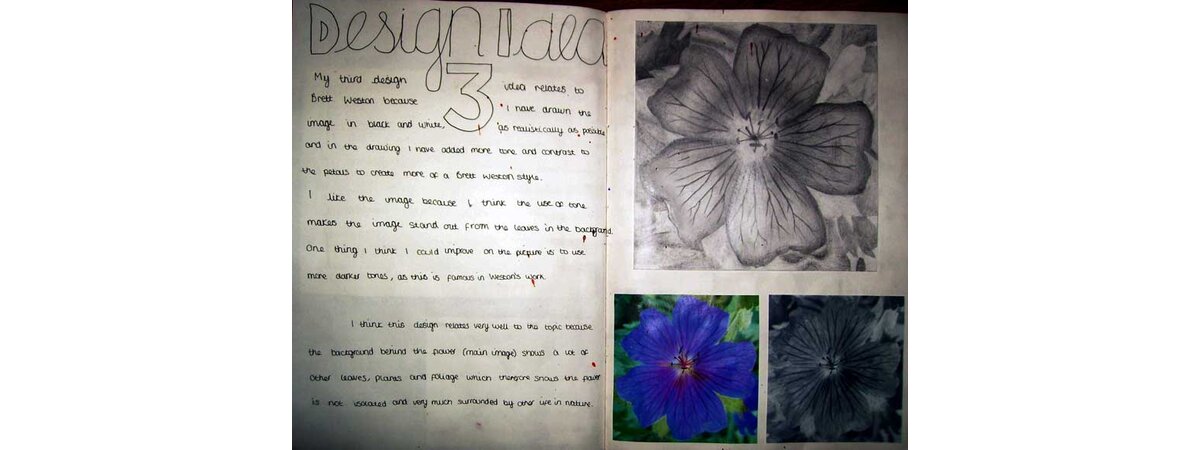 Design Idea
3
My third design idea relates to
Brett Weston because I have drawn the
image in black and white, as realistically as possible
and in the drawing I have added more tone and contrast to
the petals to create more of a Brett Weston style.
I like the image because I think the use of tone
makes the image stand out from the leaves in the background.
One thing I think I could improve on the picture is to use
more darker tones, as this is famous in Weston's work.
I think this design relates very well to the topic because
the background behind the flower (main image) shows a lot of
other leaves, plants and foliage which therefore shows the flower
is not isolated and very much surrounded by other life in nature.